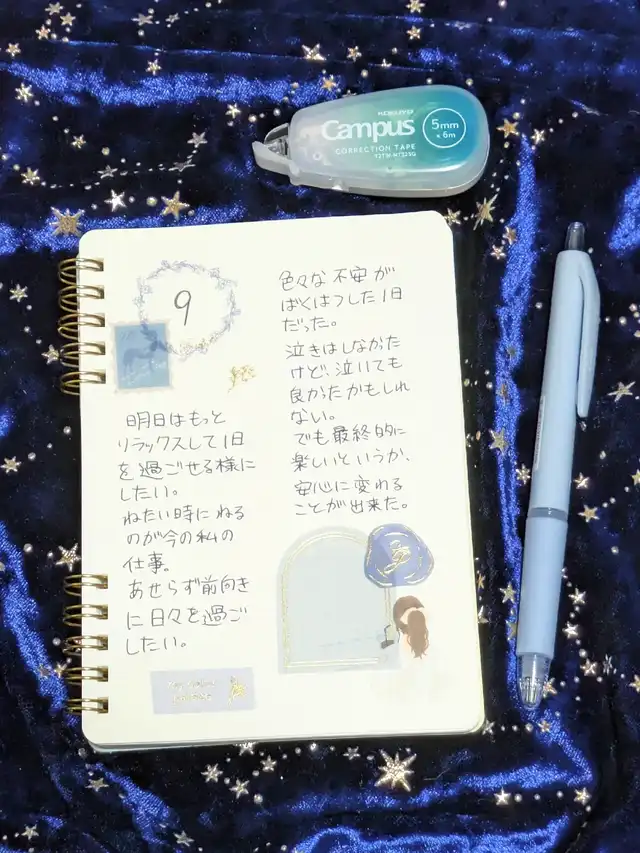 KOKUYO
Campus
5mm
× 6m
CORRECTION TAPE
9
明日はもっと
リラックスして1日
を過ごせる様に
したい。
ねたい時にねる
のが今の私の
仕事。
あせらず前向き
に日々を過ごし
したい。
色々な不安が
ばくはつした1日
だった。
泣きはしなかた
けど、泣いても
良かたかもしれ
ない。
でも最終的に
楽しいというか、
安心に変わる
ことが出来た。